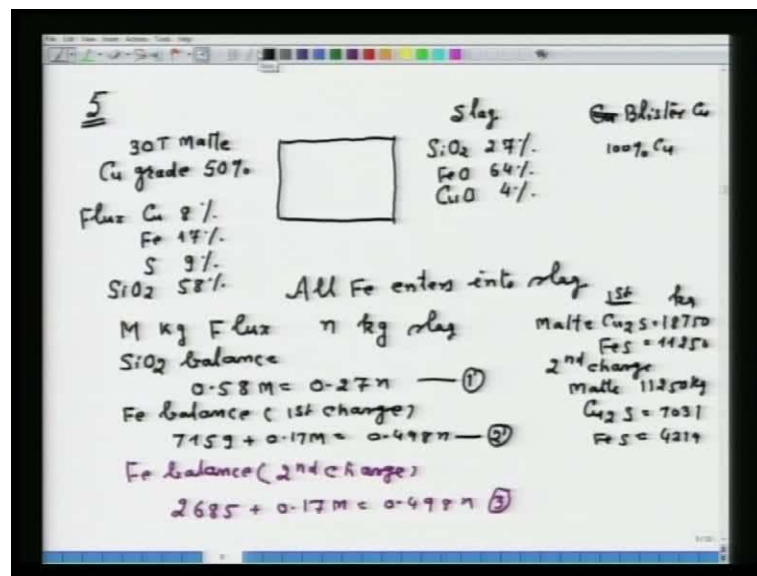 5
30T Matte
Cu grade 50%
Flux Cu 8%
Fe 17%
S 9%
SiO2 58%
Slag
SiO2 27%
FeO 64%
CuO 4%
Blister Cu
100% Cu
All Fe enters into slag
M kg Flux n kg slag
SiO2 balance
0.58M = 0.27n — ①
Fe balance (1st charge)
7159 + 0.17M = 0.498n — ②
Fe balance (2nd charge)
2685 + 0.17M = 0.498n ③
1st kg
Matte Cu2S = 18750
FeS = 11250
2nd charge
Matte 11250kg
Cu2S = 7031
FeS = 4219